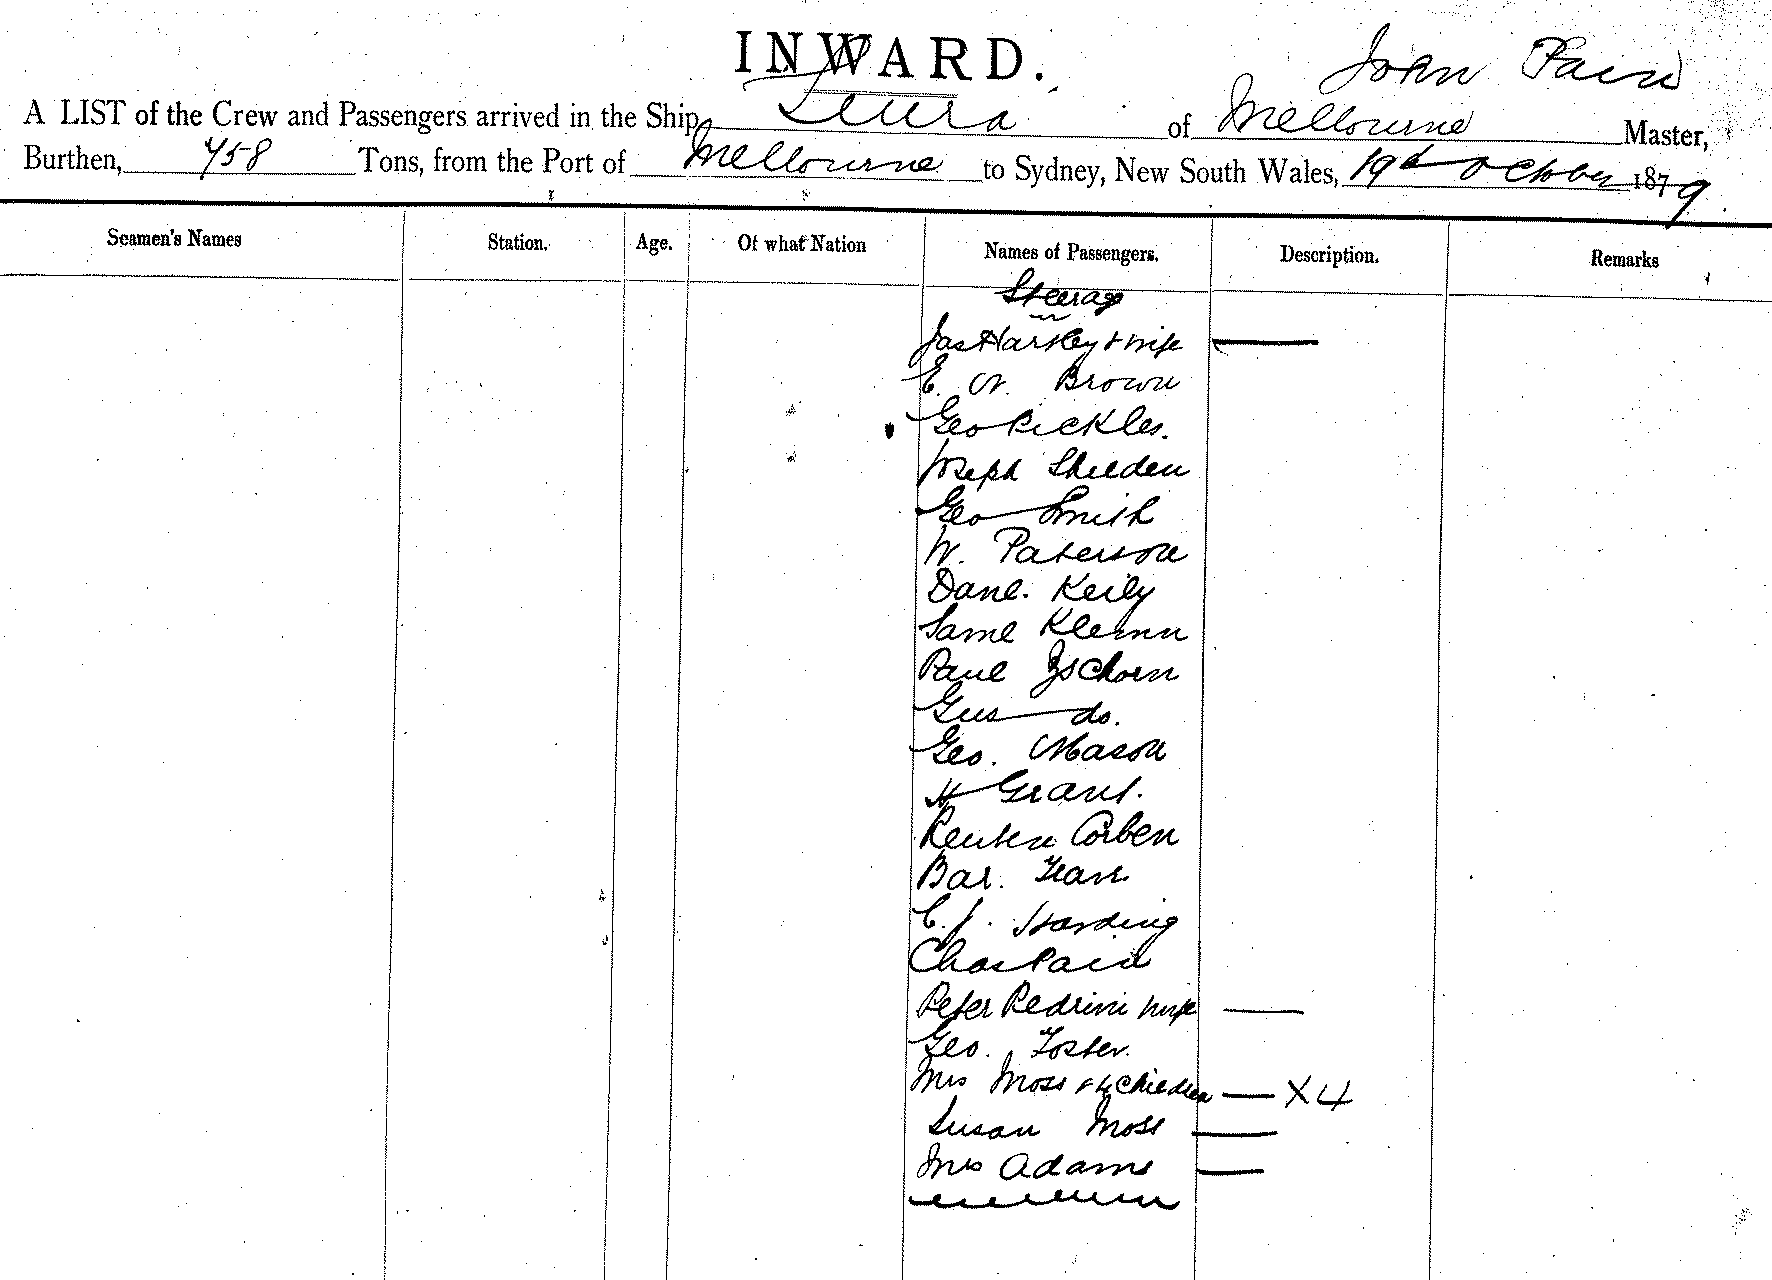 INWARD.
John Pain
A LIST of the Crew and Passengers arrived in the Ship Leura of Melbourne Master,
Burthen, 458 Tons, from the Port of Melbourne to Sydney, New South Wales, 19th October 1879
Seamen's Names Station. Age. Of what Nation Names of Passengers. Description. Remarks
Steerage
Jas Hartley & wife
E. W. Brown
Geo Pickles.
Joseph Shelden
Geo Smith
W. Paterson
Danl. Keily
Saml Klemm
Paul Zschorn
Gus do.
Geo. Mason
H Grant.
Reuben Corben
Bar.
C. J. Harding
Chas Pain
Peter Pedrini wife
Geo. Foster.
Mrs Moss & 4 Children X4
Susan Moss
Mrs Adams